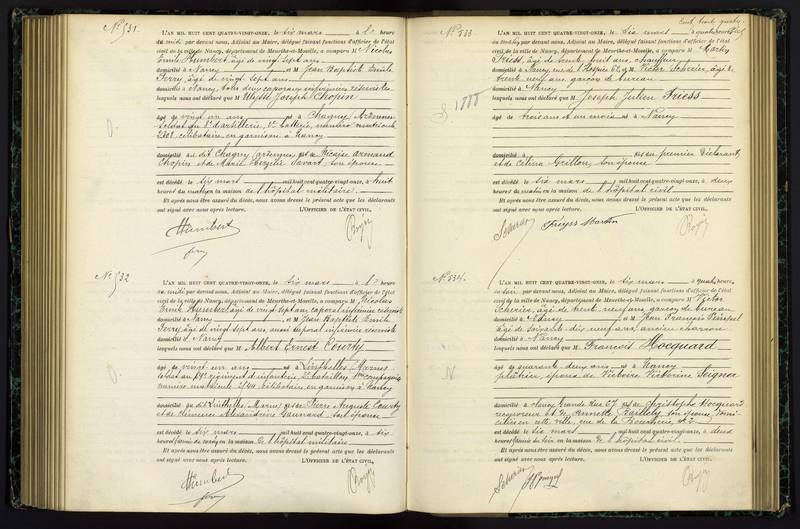 No 531
L'AN MIL HUIT CENT QUATRE-VINGT-ONZE, le six mars à
de midi par devant nous, Adjoint au Maire, délégué faisant fonctions d'officier de l'état
civil de la ville de Nancy, département de Meurthe-et-Moselle, a comparu M Nicolas
Emile Humbert, âgé de vingt sept ans
domicilié à Nancy et M Jean Baptiste Emile
Ferry, âgé de vingt sept ans
domicilié à Nancy, tous deux caporaux infirmiers réservistes
lesquels nous ont déclaré que Ulysse Joseph Chopin
âgé de vingt un ans né à Chagny Ardennes
soldat au 8e d'artillerie, batterie, numéro matricule
célibataire, en garnison à Nancy
domicilié au dit Chagny (Ardennes) fils de Nicaise Armand
Chopin et de Marie son épouse
est décédé le six mars mil huit cent quatre-vingt-onze, à huit
heures du matin en la maison de l'hôpital militaire.
Et après nous être assuré du décès, nous avons dressé le présent acte que les déclarants
ont signé avec nous après lecture. L'OFFICIER DE L'ÉTAT CIVIL,
Humbert
No 532
L'AN MIL HUIT CENT QUATRE-VINGT-ONZE, le six mars à
de midi par devant nous, Adjoint au Maire, délégué faisant fonctions d'officier de l'état
civil de la ville de Nancy, département de Meurthe-et-Moselle, a comparu M Nicolas
Emile Humbert, âgé de vingt sept ans, caporal infirmier réserviste
domicilié à Nancy et M Jean Baptiste Emile
Ferry, âgé de vingt sept ans, aussi caporal infirmier réserviste
domicilié à Nancy
lesquels nous ont déclaré que Albert Ernest Courty
âgé de vingt un ans né à Linthelles (Marne)
soldat au régiment d'infanterie, bataillon, compagnie
numéro matricule célibataire, en garnison à Nancy
domicilié au dit Linthelles, Marne, fils de Pierre Auguste Courty
et de Clémence Alexandrine son épouse
est décédé le six mars mil huit cent quatre-vingt-onze, à six
heures du matin en la maison de l'hôpital militaire
Et après nous être assuré du décès, nous avons dressé le présent acte que les déclarants
ont signé avec nous après lecture. L'OFFICIER DE L'ÉTAT CIVIL,
Humbert
Cent trente quatre
No 533
L'AN MIL HUIT CENT QUATRE-VINGT-ONZE, le six mars à quatre heures
par devant nous, Adjoint au Maire, délégué faisant fonctions d'officier de l'état
civil de la ville de Nancy, département de Meurthe-et-Moselle, a comparu M
Friess, âgé de trente huit ans, chauffeur
domicilié à Nancy, rue de l'hospice et M Victor Scherier, âgé de
trente neuf ans, garçon de bureau
domicilié à Nancy
lesquels nous ont déclaré que Joseph Julien Friess
âgé de trois ans et un mois né à Nancy
domicilié fils du premier déclarant,
et de Célina son épouse
est décédé le six mars mil huit cent quatre-vingt-onze, à deux
heures du matin en la maison de l'hôpital civil
Et après nous être assuré du décès, nous avons dressé le présent acte que les déclarants
ont signé avec nous après lecture. L'OFFICIER DE L'ÉTAT CIVIL,
No 534
L'AN MIL HUIT CENT QUATRE-VINGT-ONZE, le six mars à quatre heures
du soir par devant nous, Adjoint au Maire, délégué faisant fonctions d'officier de l'état
civil de la ville de Nancy, département de Meurthe-et-Moselle, a comparu M Victor
Scherier, âgé de trente neuf ans, garçon de bureau
domicilié à Nancy et M Jean François
âgé de soixante dix neuf ans, ancien charron
domicilié à Nancy
lesquels nous ont déclaré que Francois Hocquard
âgé de quarante deux ans né à Nancy
plâtrier, époux de Victoire Victorine
domicilié à Nancy Grande Rue 57 fils de Christophe Hocquard
et de Annette son épouse, domi-
ciliés en cette ville, rue de la
est décédé le six mars mil huit cent quatre-vingt-onze, à deux
heures du soir en la maison de l'hôpital civil.
Et après nous être assuré du décès, nous avons dressé le présent acte que les déclarants
ont signé avec nous après lecture. L'OFFICIER DE L'ÉTAT CIVIL,